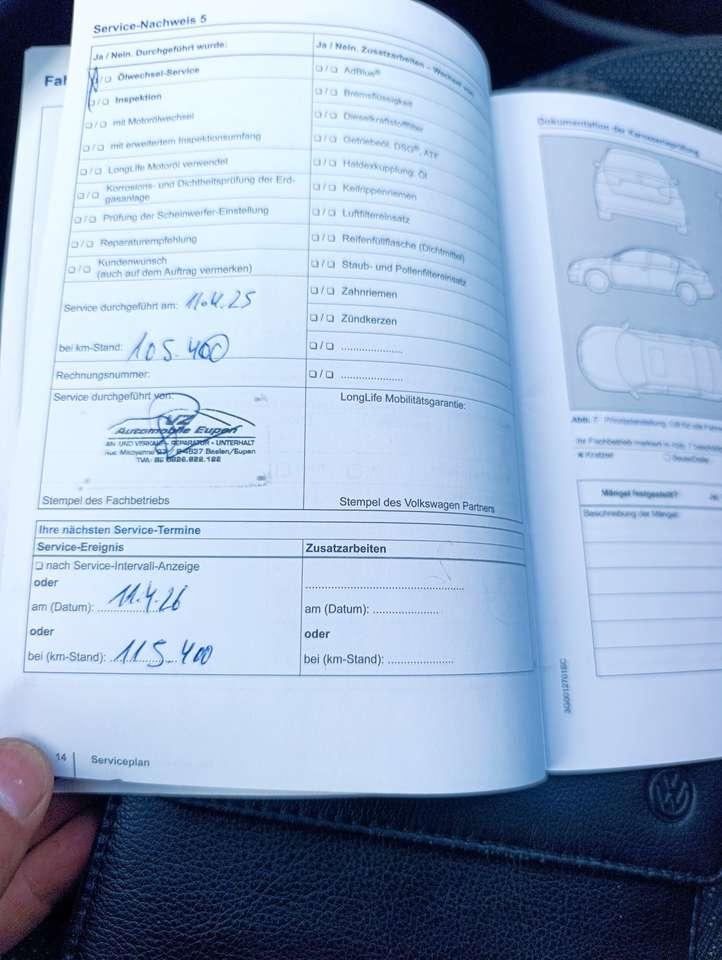 Service-Nachweis 5
Ja / Nein. Durchgeführt wurde:
❏ / ❏ Ölwechsel-Service
❏ / ❏ Inspektion
❏ / ❏ mit Motorölwechsel
❏ / ❏ mit erweitertem Inspektionsumfang
❏ / ❏ LongLife Motoröl verwendet
❏ / ❏ Korrosions- und Dichtheitsprüfung der Erd-
gasanlage
❏ / ❏ Prüfung der Scheinwerfer-Einstellung
❏ / ❏ Reparaturempfehlung
❏ / ❏ Kundenwunsch
(auch auf dem Auftrag vermerken)
Service durchgeführt am: 11.4.25
bei km-Stand: 105.400
Rechnungsnummer:
Service durchgeführt von:
VZ
Automobile Eupen
AN- UND VERKAUF - REPARATUR - UNTERHALT
Baelen/Eupen
Stempel des Fachbetriebs
Ja / Nein. Zusatzarbeiten – Wechsel von:
❏ / ❏ AdBlue®
❏ / ❏ Bremsflüssigkeit
❏ / ❏ Dieselkraftstofffilter
❏ / ❏ Getriebeöl, DSG®, ATF
❏ / ❏ Haldexkupplung: Öl
❏ / ❏ Keilrippenriemen
❏ / ❏ Luftfiltereinsatz
❏ / ❏ Reifenfüllflasche (Dichtmittel)
❏ / ❏ Staub- und Pollenfiltereinsatz
❏ / ❏ Zahnriemen
❏ / ❏ Zündkerzen
❏ / ❏ .....................
❏ / ❏ .....................
LongLife Mobilitätsgarantie:
Stempel des Volkswagen Partners
Ihre nächsten Service-Termine
Service-Ereignis
❏ nach Service-Intervall-Anzeige
oder
am (Datum): 11.4.26
oder
bei (km-Stand): 115.400
Zusatzarbeiten
.....................................................
am (Datum): ......................
oder
bei (km-Stand): ......................
14 Serviceplan
Fah
Dokumentation der Karosserieprüfung
Mängel festgestellt?
Beschreibung der Mängel:
3G0012701BC